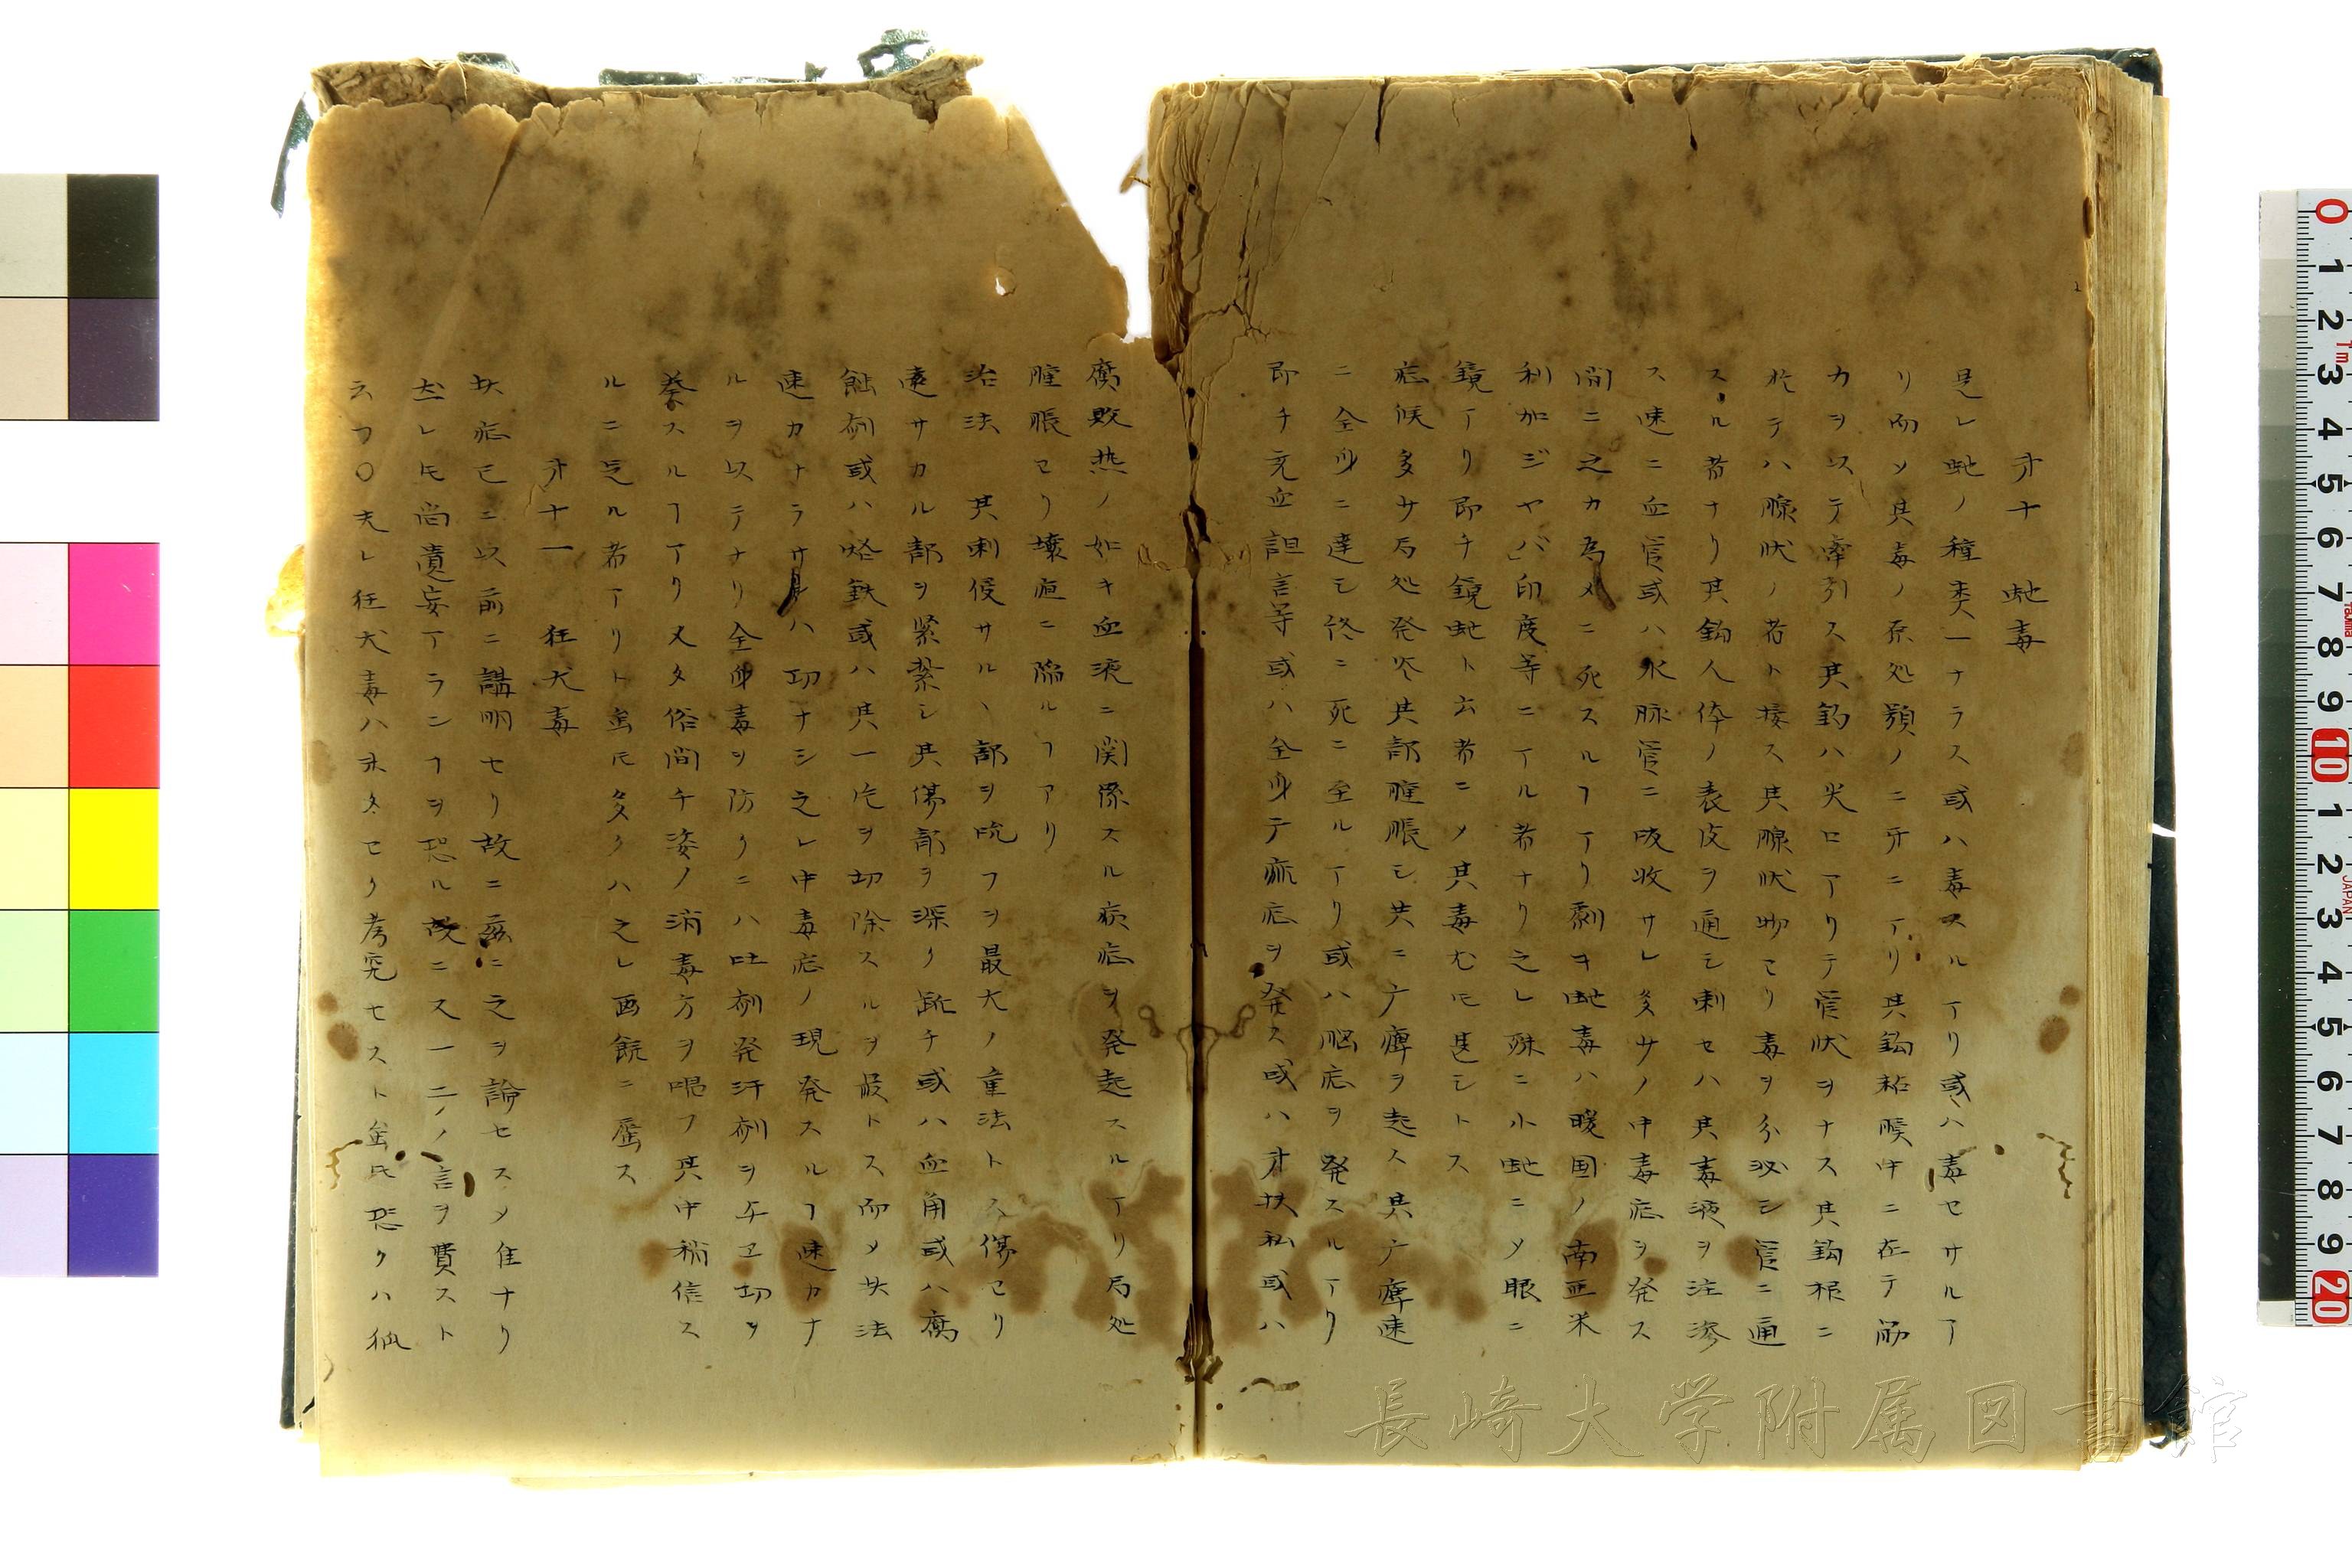 才十 虵毒
是レ虵ノ種类一ナラス或ハ毒スルヿアリ或ハ毒セサルヿア
リ而メ其毒ノ在処顎ノ二牙ニアリ其鈎粘膜中ニ在テ筋
力ヲ以テ牽引ス其鈎ハ尖口アリテ管状ヲナス其鈎根ニ
於テハ腺状ノ者ト接ス其腺状物ヨリ毒ヲ分泌シ管ニ通
スル者ナリ其鈎人体ノ表皮ヲ通シ刺セハ其毒液ヲ注滲
ス速ニ血管或ハ水脉管ニ吸收サレ多少ノ中毒症ヲ発ス
間ニ之カ為メニ死スルヿアリ劇キ虵毒ハ暖国ノ南亜米
利加ジヤバ印度等ニアル者ナリ之レ殊ニ小虵ニメ眼ニ
鏡アリ即チ鏡虵ト云者ニメ其毒尤モ甚シトス
症候多少局処発炎其部腫脹シ共ニ疒痺ヲ起ス其疒痺速
ニ全身ニ達シ終ニ死ニ至ルアリ或ハ脳症ヲ発スルアリ
即チ充血譫言等或ハ全身テ症ヲ発ス或ハ才扶私或ハ
腐敗热ノ如キ血液ニ関係スル病症ヲ発起スルアリ局処
腫脹ヨリ壊疽ニ陥ルヿアリ
治法 其刺侵サルヽ部ヲ吮フヲ最大ノ重法トス傷ヨリ
遠サカル部ヲ緊紮シ其傷部ヲ深ク截チ或ハ血角或ハ腐
蝕剤或ハ烙鉄或ハ其一片ヲ切除スルヲ最トス而メ其法
速カナラサルハ功ナシ之レ中毒症ノ現発スルヿ速カナ
ルヲ以テナリ全身毒ヲ防クニハ吐剤発汗剤ヲ与ヱ功ヲ
奏スルヿアリ又タ俗間チ姿ノ消毒方ヲ唱フ其中稍信ス
ルニ足ル者アリト虽モ多クハ之レ画餅ニ属ス
才十一 狂犬毒
此症已ニ以前ニ講明セリ故ニ茲ニ之ヲ論セスメ隹ナリ
然レモ尚遺妄アランヿヲ恐ル故ニ又一二ノ言ヲ費スト
云フ〇夫レ狂犬毒ハ未タヨク考究セスト虽モ恐クハ狐